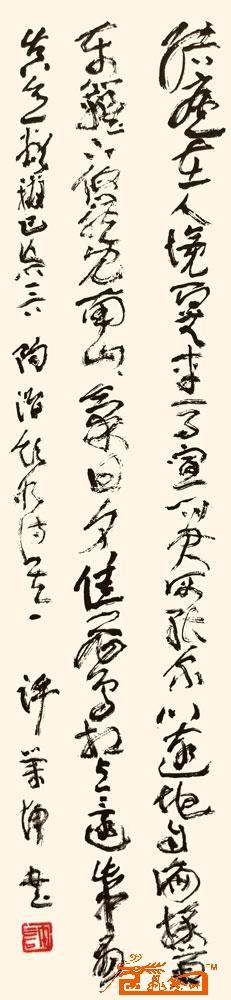 结庐在人境而无车马喧问君何能尔心远地自偏采菊
东篱下悠然见南山山气日夕佳飞鸟相与还此中有
真意欲辨已忘言 陶渊明饮酒诗其一 许业伟书